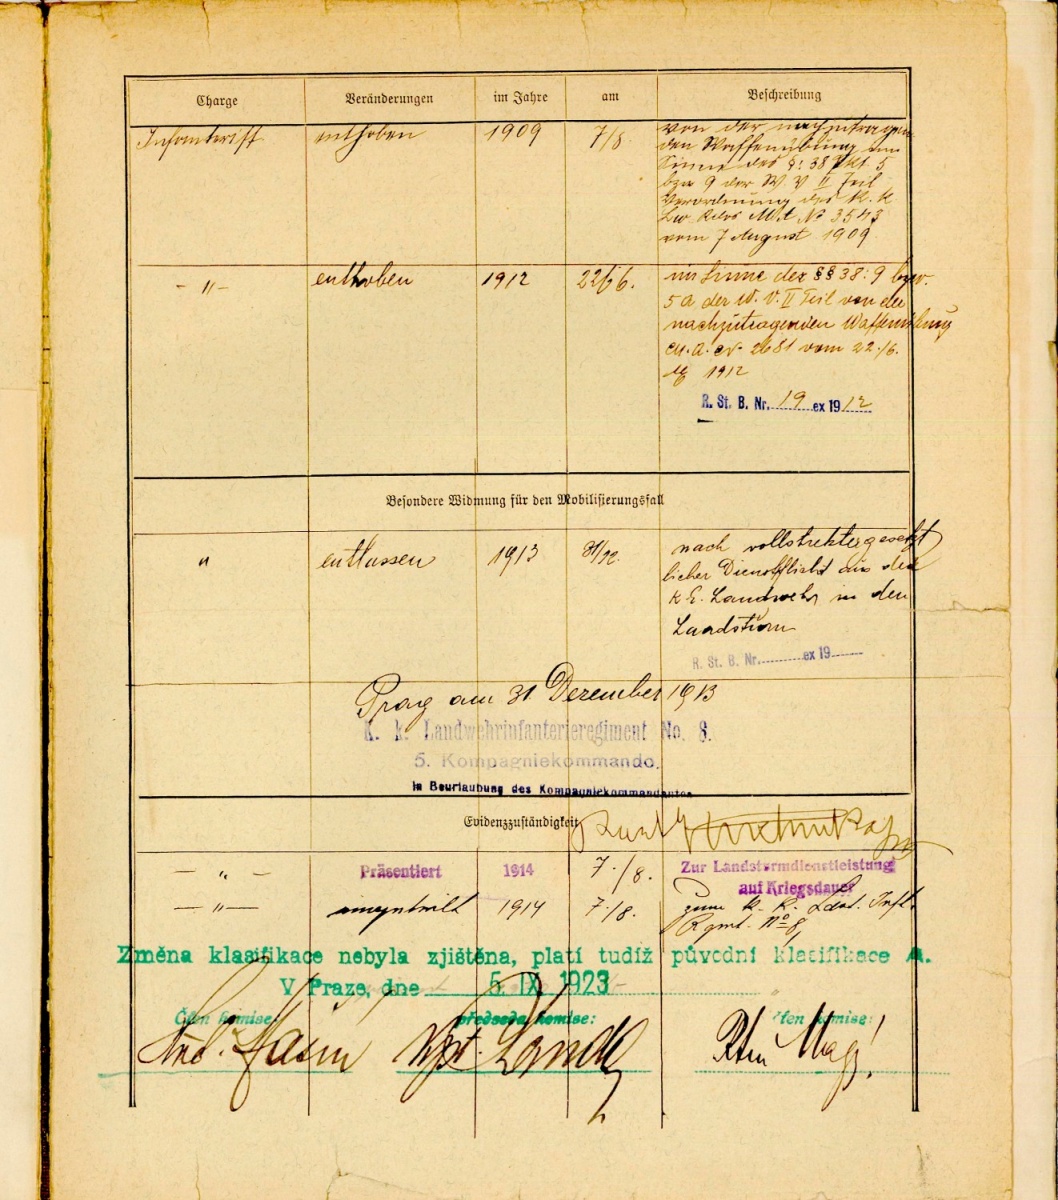 Charge Veränderungen im Jahre am Beschreibung
Infanterist enthoben 1909 7/8. von der nachzutragen
den Waffenübung im
Sinne des §: 38 Pkt. 5
bzw 9 der W. V II Teil
Verordnung des K. K.
Lw Kdos M.A No 3543
vom 7 August 1909
- " - enthoben 1912 22/6. im Sinne der §§ 38: 9 bzw.
5 a der W. V. II Teil von der
nachzutragenden Waffenübung
M. A. Nr 2681 vom 22./6.
1912
R. St. B. Nr. 19 ex 1912
Besondere Widmung für den Mobilisierungsfall
" entlassen 1913 31/12. nach vollstrekter gesetz
licher Dienstpflicht aus der
k. k. Landwehr in den
Landsturm
R. St. B. Nr. ex 19
Prag am 31. Dezember 1913
K. k. Landwehrinfanterieregiment No. 8.
5. Kompagniekommando.
In Beurlaubung des Kompagniekommandanten
Evidenzzuständigkeit
- " - Präsentiert 1914 7./8. Zur Landsturmdienstleistung
auf Kriegsdauer
- " - 1914 7./8. zum k. k. Ldst. Inft.
Rgmt. No 8,
Změna klasifikace nebyla zjištěna, platí tudíž původní klasifikace A.
V Praze, dne 5. IX. 1923
Člen komise: předseda komise: člen komise: